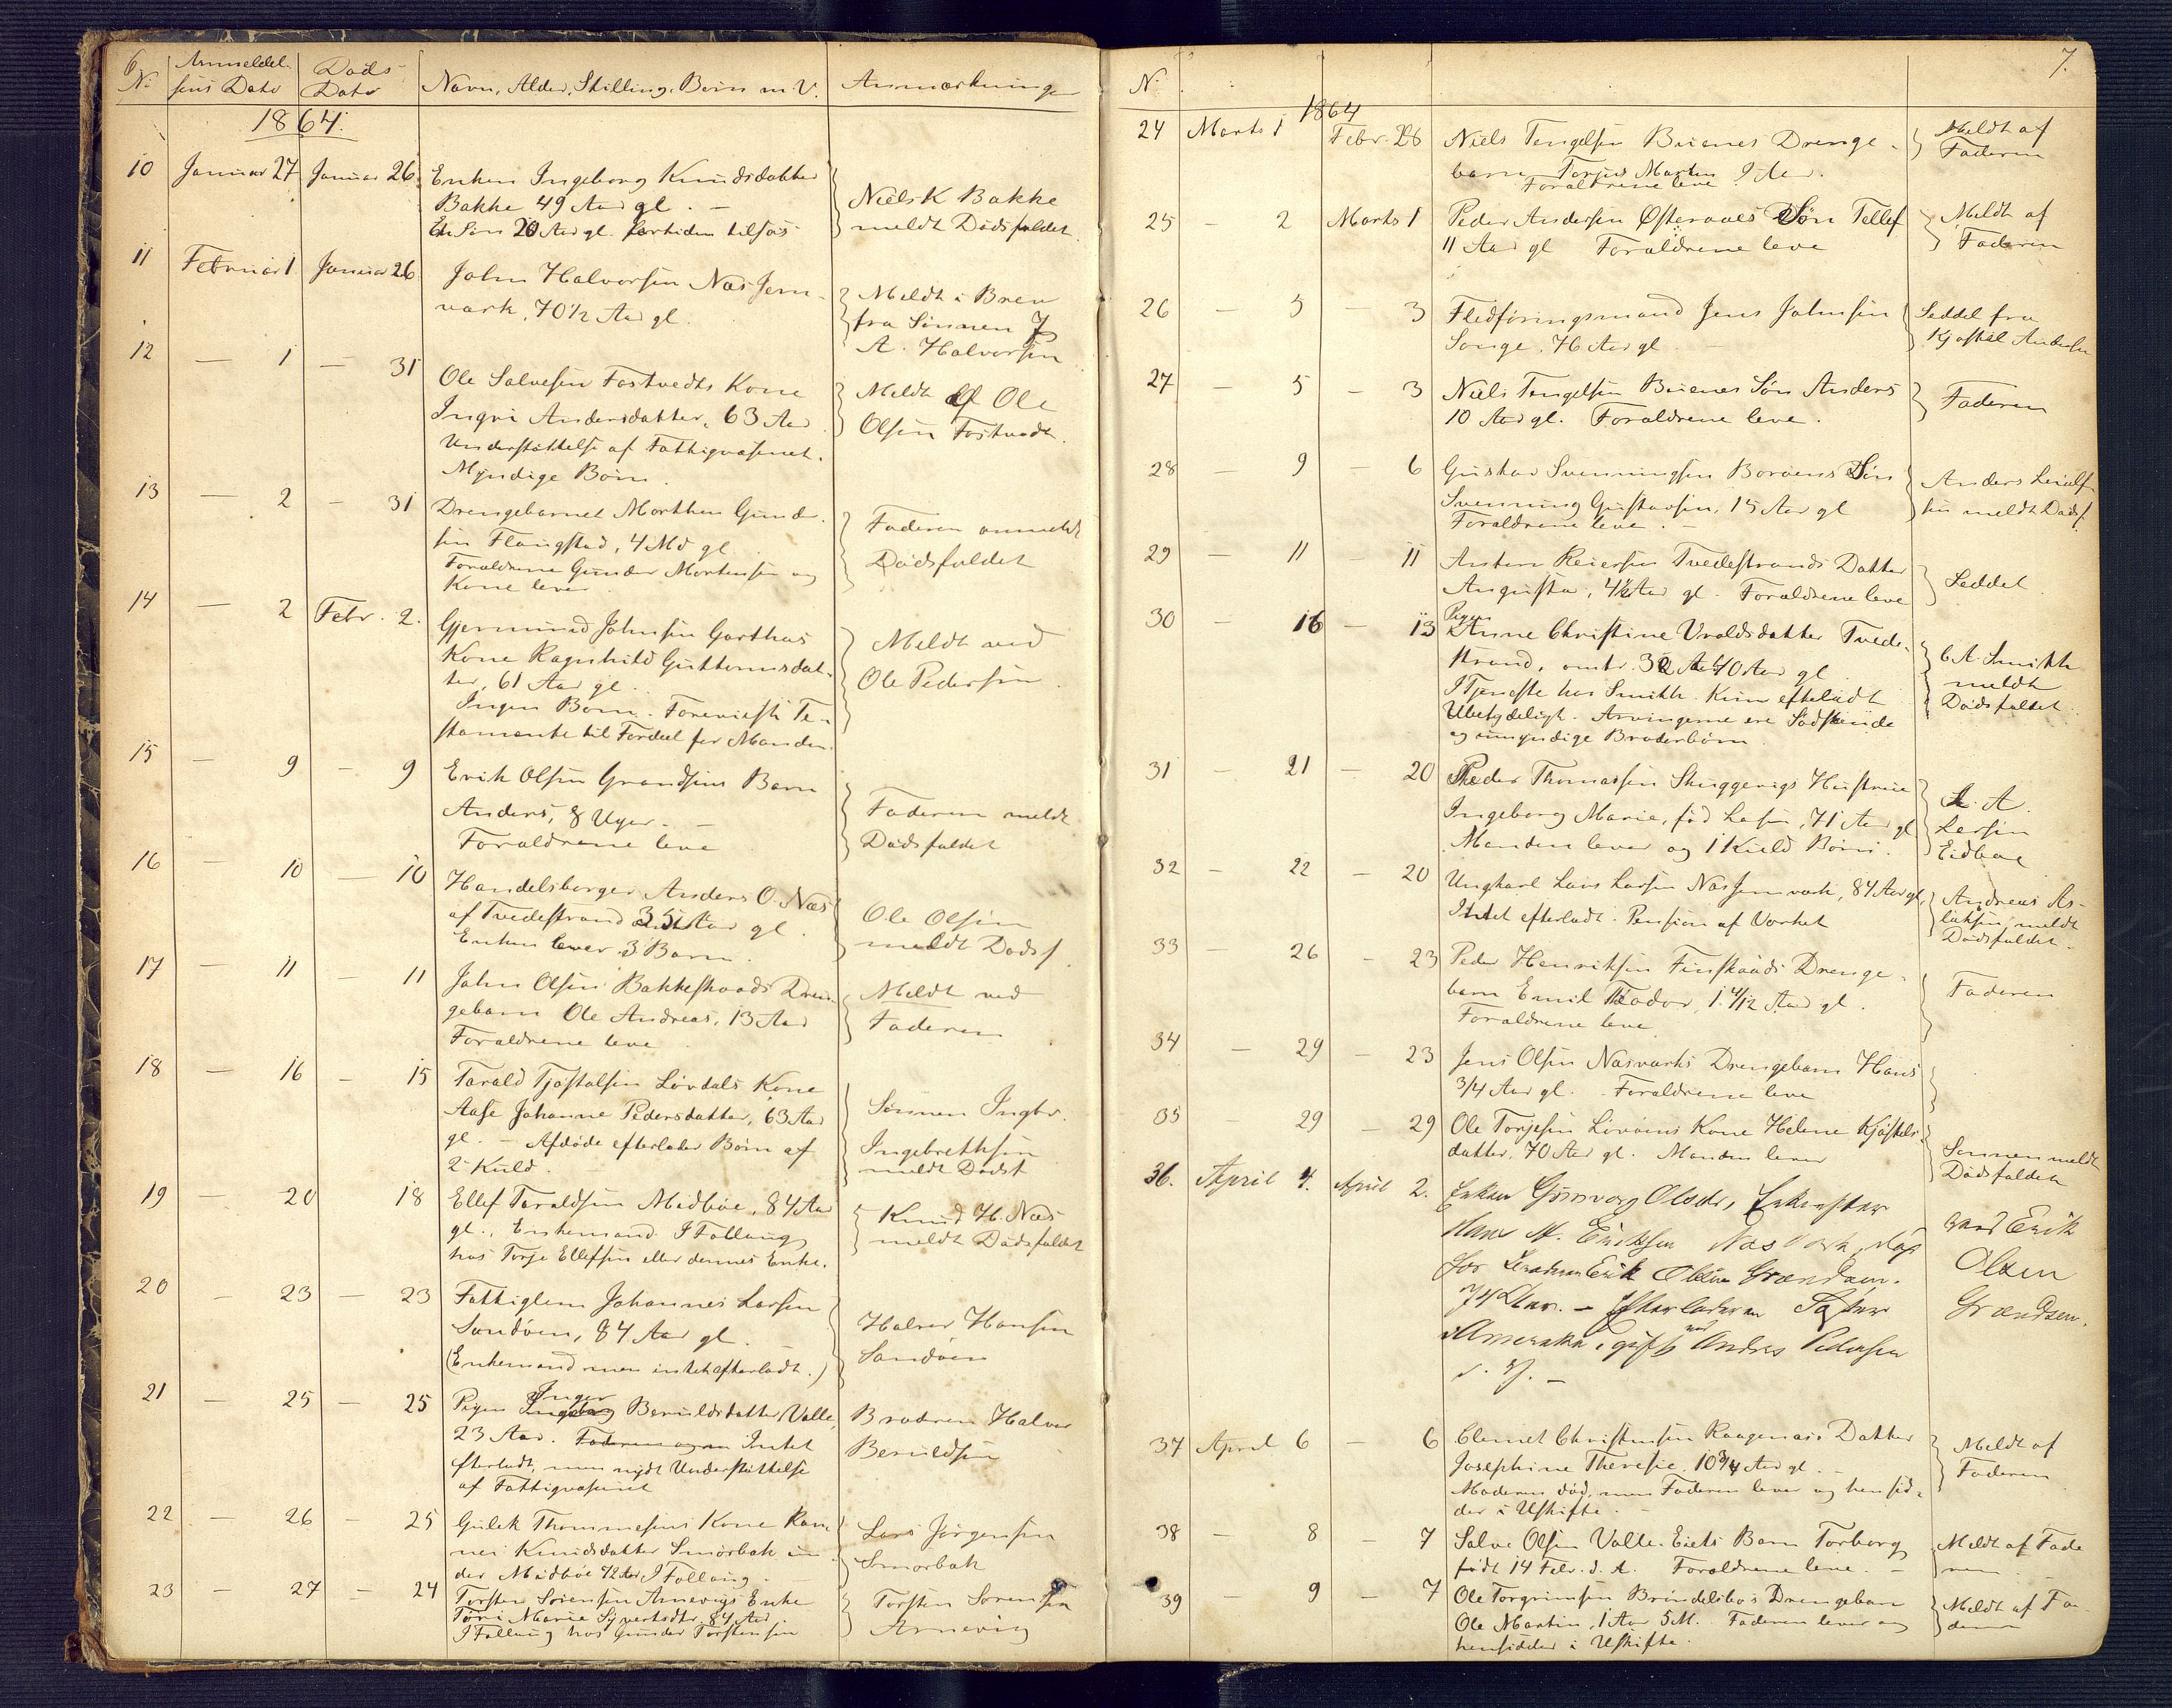 6
No Anmeldel- Døds Navn, Alder, Stilling, Børn m. V. Anmærkninger
sens Dato Dato
1864.
10 Januar 27 Januar 26 Enken Ingeborg Knudsdatter
Bakke 49 Aar gl. –
En Søn 20 Aar gl. fortiden tilsøs
Niels K Bakke
meldt Dødsfaldet
11 Februar 1 Januar 26 John Halvorsen Næs Jern-
værk, 70 1/2 Aar gl.
Meldt i Brev
fra Sønnen
A. Halvorsen
12 — 1 — 31 Ole Salvesen Fostvedts Kone
Ingri Andersdatter, 63 Aar
Understøttelse af Fattigvæsenet.
Myndige Børn.
Meldt af Ole
Olsen Fostvedt.
13 — 2 — 31 Drengebarnet Morthen Gunder-
sen Flaugstad, 4 Md gl.
Forældrene Gunder Mortensen og
Kone lever
Faderen anmeldt
Dødsfaldet
14 — 2 Febr. 2. Gjermund Johnsen Garthas
Kone Ragnhild Guttormsdat-
ter, 61 Aar gl.
Ingen Børn. Foreviste Te-
stamente til Fordeel for Manden.
Meldt ved
Ole Pedersen
15 — 9 — 9 Erik Olsen Grændsens Barn
Anders, 8 Uger. –
Forældrene leve
Faderen meldt
Dødsfaldet
16 — 10 — 10 Handelsborger Anders O. Næs
af Tvedestrand 35 Aar gl.
Enken lever 3 Børn.
Ole Olsen
meldt Dødsf.
17 — 11 — 11 John Olsen Bakkeskaads Dren-
gebarn Ole Andreas, 13 Aar
Forældrene leve
Meldt ved
Faderen
18 — 16 — 15 Tarald Tjøstolsen Løvdals Kone
Aase Johanne Pedersdatter, 63 Aar
gl. – Afdøde efterlader Børn af
2 Kuld.
Sønnen Ingbr.
Ingebrethsen
meldt Dødsf
19 — 20 18 Ellef Taraldsen Midbøe, 84 Aar
gl., Enkemand. I Follaug
hos Torje Ellefsen eller dennes Enke.
Knud H. Næs
meldt Dødsfaldet
20 — 23 — 23 Fattiglem Johannes Larsen
Sandøen, 84 Aar gl.
(Enkemand men intet efterladt.)
Halvor Hansen
Sandøen
21 — 25 — 25 Pigen Inger Beruldsdatter Valle,
23 Aar. Intet
efterladt, men nydt Understøttelse
af Fattigvæsenet
Broderen Halvor
Beruldsen
22 — 26 — 25 Gulek Thommesens Kone Ran-
nei Knudsdatter Smørbæk un-
der Midbøe 42 Aar I Follaug. –
Lars Jørgensen
Smørbæk
23 — 27 — 24 Torsten Sørensen Arnevigs Enke
Toni Marie Syvertsdtr. 84 Aar.
I Follaug hos Gunder Torstensen
Torsten Sørensen
Arnevig
7.
N.
1864
24 Marts 1 Febr. 28 Niels Tengelsen Buenes Drenge-
barn Torjus Marten 9 Aar.
Forældrene leve
Meldt af
Faderen
25 — 2 Marts 1 Peder Andersen Østeraaes Søn Tellef
11 Aar gl Forældrene leve
Meldt af
Faderen
26 — 5 — 3 Fledføringsmand Jens Johnsen
Songe, 76 Aar gl.
Seddel fra
Kjøstel Andersen
27 — 5 — 3 Niels Tengelsen Buenes Søn Anders
10 Aar gl. Forældrene leve.
Faderen
28 — 9 — 6 Gustav Svenningsen Borøens Søn
Svenning Gustavsen, 15 Aar gl
Forældrene leve. –
Anders
sen meldt Dødsf.
29 — 11 — 11 Anton Reiersen Tvedestrands Datter
Augusta, 4 1/2 Aar gl. Forældrene leve
Seddel
30 — 16 — 13 Pigen
Anne Christine Uroldsdatter Tvede-
strand, omtr. 40 Aar gl
I Tjeneste hos Smith. Kun efterladt
Ubetydeligt. Arvingerne ere Sødskende
og umyndige Broderbørn.
C A Smith
meldt
Dødsfaldet.
31 — 21 — 20 Peder Thomassen Skuggevigs Hustrue
Ingeborg Marie, fød Larsen, 71 Aar gl
Manden lever og 1 Kuld Børn.
A.
Larsen
Eidboe
32 — 22 — 20 Ungkarl Lars Larsen Næs Jernværk, 84 Aar gl,
Intet efterladt. Pension af Værket
Andreas As-
laksen meldt
Dødsfaldet.
33 — 26 — 23 Peder Henriksen Finskaads Drenge-
barn Emil Theodor, 1 4/12 Aar gl.
Forældrene leve
Faderen
34 — 29 — 23 Jens Olsen Næsværks Drengebarn Hans
3/4 Aar gl. Forældrene leve
35 — 29 — 29 Ole Torjesen Løvøens Kone Helene Kjøstels-
datter, 70 Aar gl. Manden lever
Sønnen meldt
Dødsfaldet
36. April 4. April 2. Enken Gunvorg Olsdr, Enke efter
Hans M. Eriksen Næs Værk,
for Erik Olsen Grændsen.
74 Aar. – Efterlader en Datter
i Amerika, gift med Andres Pedersen
ved Erik
Olsen
Grændsen.
37 April 6 — 6 Clemet Christensen Raagenæs Datter
Josephine Theresie, 10 3/4 Aar gl. –
Moderen død, men Faderen lever og hensid-
der i Uskifte. –
Meldt af
Faderen
38 — 8 — 7 Salve Olsen Valle-Eiets Barn Torborg
født 14 Febr. d. A. Forældrene leve. –
Meldt af Fade
ren
39 — 9 — 7 Ole Torgrimsen Brøndelsbo's Drengebarn
Ole Martin, 1 Aar 5 M. Faderen lever og
hensidder i Uskifte.
Meldt af Fa-
deren